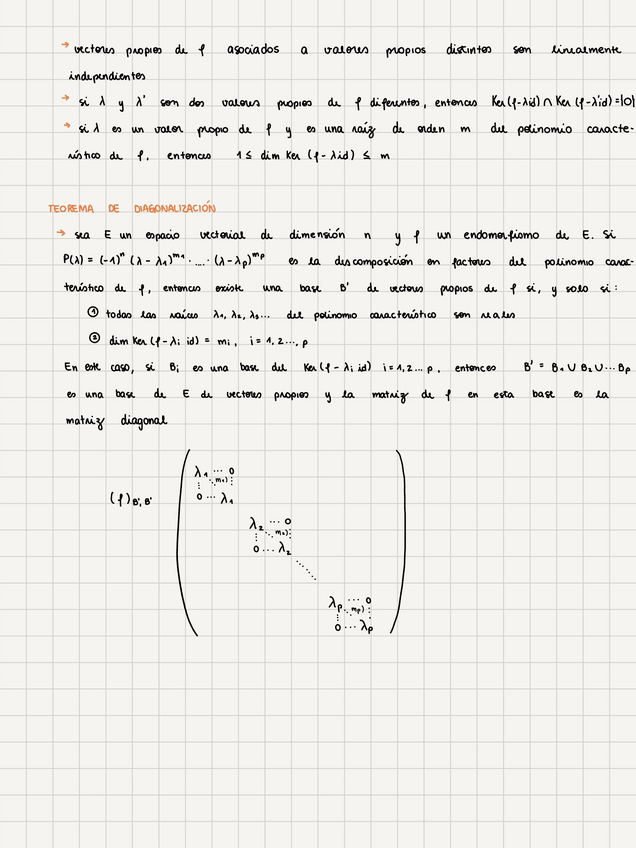 → vectores propios de f asociados a valores propios distintos son linealmente
independientes
→ si λ y λ' son dos valores propios de f diferentes, entonces Ker(f-λid) ∩ Ker (f-λ'id) = {0}
→ si λ es un valor propio de f y es una raíz de orden m del polinomio caracte-
rístico de f, entonces 1 ≤ dim Ker (f-λid) ≤ m
TEOREMA DE DIAGONALIZACIÓN
→ sea E un espacio vectorial de dimensión n y f un endomorfismo de E. Si
P(λ) = (-1)ⁿ (λ - λ₁)^m₁ · .... · (λ - λp)^mp es la descomposición en factores del polinomio carac-
terístico de f, entonces existe una base B' de vectores propios de f si, y solo si:
① todas las raíces λ₁, λ₂, λ₃... del polinomio característico son reales
② dim Ker (f - λi id) = mi, i = 1, 2..., p
En este caso, si Bi es una base del Ker (f - λi id) i = 1, 2... p, entonces B' = B₁ ∪ B₂ ∪ ... Bp
es una base de E de vectores propios y la matriz de f en esta base es la
matriz diagonal
λ₁ ... 0
m₁)
(f)B',B' 0 ... λ₁
λ₂ ... 0
m₂)
0 ... λ₂
λp ... 0
mp)
0 ... λp